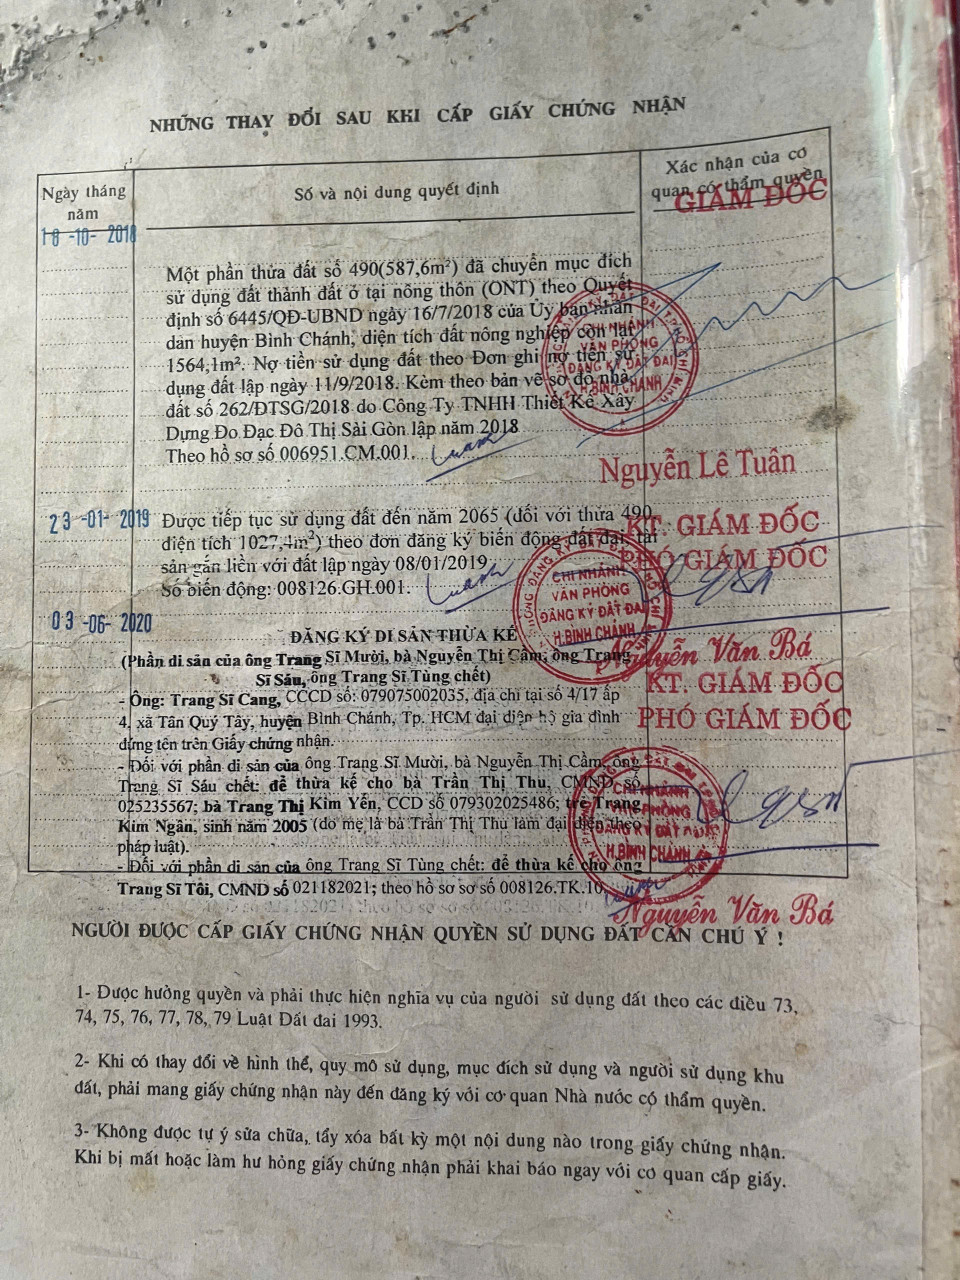 NHỮNG THAY ĐỔI SAU KHI CẤP GIẤY CHỨNG NHẬN
Ngày tháng năm
Số và nội dung quyết định
Xác nhận của cơ quan có thẩm quyền
GIÁM ĐỐC
18-10-2018
Một phần thửa đất số 490(587,6m²) đã chuyển mục đích
sử dụng đất thành đất ở tại nông thôn (ONT) theo Quyết
định số 6445/QĐ-UBND ngày 16/7/2018 của Ủy ban nhân
dân huyện Bình Chánh, diện tích đất nông nghiệp còn lại
1564,1m². Nợ tiền sử dụng đất theo Đơn ghi nợ tiền sử
dụng đất lập ngày 11/9/2018. Kèm theo bản vẽ sơ đồ nhà
đất số 262/ĐTSG/2018 do Công Ty TNHH Thiết Kế Xây
Dựng Đo Đạc Đô Thị Sài Gòn lập năm 2018
Theo hồ sơ số 006951.CM.001.
CHI NHÁNH
VĂN PHÒNG
ĐĂNG KÝ ĐẤT ĐAI
H.BÌNH CHÁNH
Nguyễn Lê Tuân
23-01-2019
Được tiếp tục sử dụng đất đến năm 2065 (đối với thửa 490
diện tích 1027,4m²) theo đơn đăng ký biến động đất đai, tài
sản gắn liền với đất lập ngày 08/01/2019
Số biến động: 008126.GH.001.
KT. GIÁM ĐỐC
PHÓ GIÁM ĐỐC
CHI NHÁNH
VĂN PHÒNG
ĐĂNG KÝ ĐẤT ĐAI
H.BÌNH CHÁNH
Nguyễn Văn Bá
03-06-2020
ĐĂNG KÝ DI SẢN THỪA KẾ
(Phần di sản của ông Trang Sĩ Mười, bà Nguyễn Thị Cầm, ông Trang
Sĩ Sáu, ông Trang Sĩ Tùng chết)
- Ông: Trang Sĩ Cang, CCCD số: 079075002035, địa chỉ tại số 4/17 ấp
4, xã Tân Quý Tây, huyện Bình Chánh, Tp. HCM đại diện hộ gia đình
đứng tên trên Giấy chứng nhận.
- Đối với phần di sản của ông Trang Sĩ Mười, bà Nguyễn Thị Cầm, ông
Trang Sĩ Sáu chết: để thừa kế cho bà Trần Thị Thu, CMND số
025235567; bà Trang Thị Kim Yến, CCD số 079302025486; trẻ Trang
Kim Ngân, sinh năm 2005 (do mẹ là bà Trần Thị Thu làm đại diện theo
pháp luật).
- Đối với phần di sản của ông Trang Sĩ Tùng chết: để thừa kế cho ông
Trang Sĩ Tôi, CMND số 021182021; theo hồ sơ số 008126.TK.10.
KT. GIÁM ĐỐC
PHÓ GIÁM ĐỐC
CHI NHÁNH
VĂN PHÒNG
ĐĂNG KÝ ĐẤT ĐAI
H.BÌNH CHÁNH
Nguyễn Văn Bá
NGƯỜI ĐƯỢC CẤP GIẤY CHỨNG NHẬN QUYỀN SỬ DỤNG ĐẤT CẦN CHÚ Ý !
1- Được hưởng quyền và phải thực hiện nghĩa vụ của người sử dụng đất theo các điều 73,
74, 75, 76, 77, 78, 79 Luật Đất đai 1993.
2- Khi có thay đổi về hình thể, quy mô sử dụng, mục đích sử dụng và người sử dụng khu
đất, phải mang giấy chứng nhận này đến đăng ký với cơ quan Nhà nước có thẩm quyền.
3- Không được tự ý sửa chữa, tẩy xóa bất kỳ một nội dung nào trong giấy chứng nhận.
Khi bị mất hoặc làm hư hỏng giấy chứng nhận phải khai báo ngay với cơ quan cấp giấy.